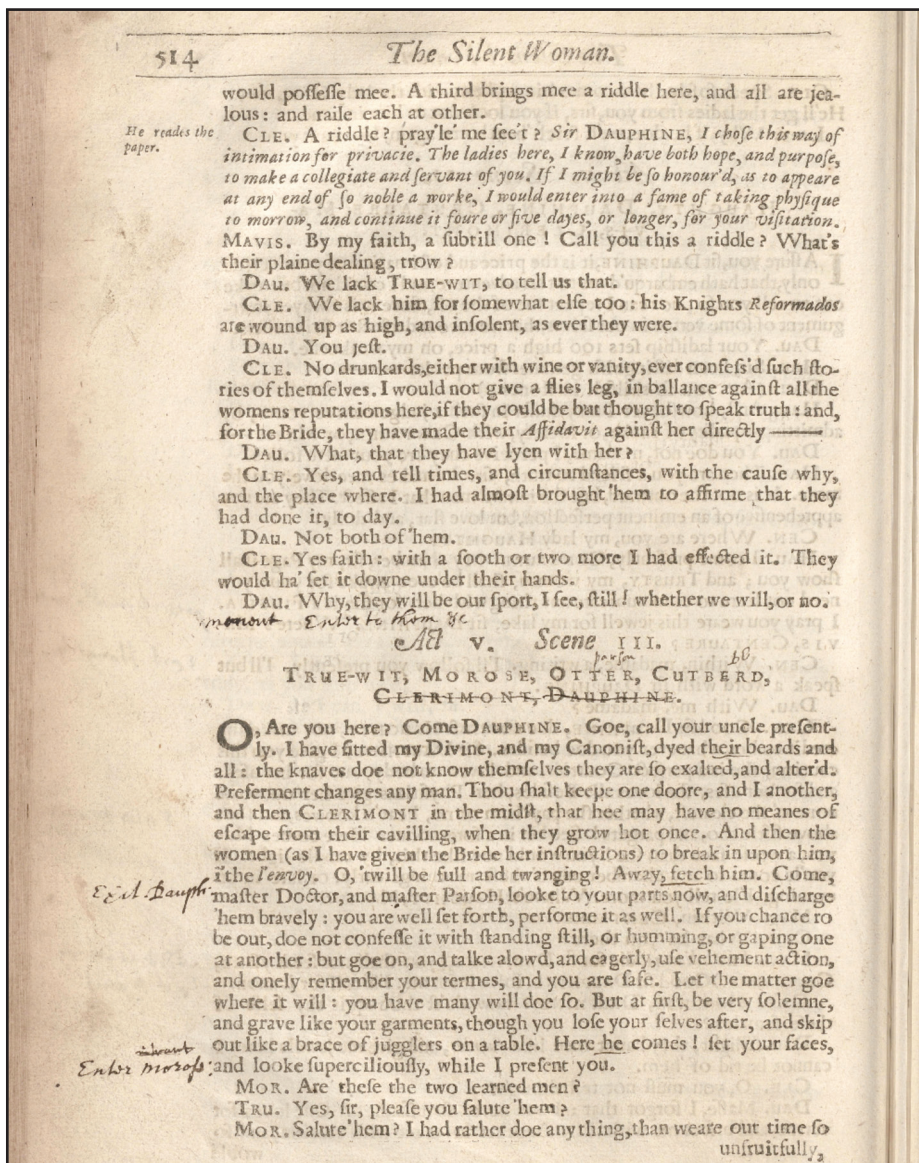 514 The Silent Woman.
would poſſeſſe mee. A third brings mee a riddle here, and all are jea-
lous: and raile each at other.
He reades the
paper.
CLE. A riddle? pray'le' me ſee't? Sir DAUPHINE, I choſe this way of
intimation for privacie. The ladies here, I know, have both hope, and purpoſe,
to make a collegiate and ſervant of you. If I might be ſo honour'd, as to appeare
at any end of ſo noble a worke, I would enter into a fame of taking phyſique
to morrow, and continue it foure or five dayes, or longer, for your viſitation.
MAVIS. By my faith, a ſubtill one! Call you this a riddle? What's
their plaine dealing, trow?
DAU. We lack TRUE-WIT, to tell us that.
CLE. We lack him for ſomewhat elſe too: his Knights Reformados
are wound up as high, and inſolent, as ever they were.
DAU. You jeſt.
CLE. No drunkards, either with wine or vanity, ever confeſs'd ſuch ſto-
ries of themſelves. I would not give a flies leg, in ballance againſt all the
womens reputations here, if they could be but thought to ſpeak truth: and,
for the Bride, they have made their Affidavit againſt her directly ——
DAU. What, that they have lyen with her?
CLE. Yes, and tell times, and circumſtances, with the cauſe why,
and the place where. I had almoſt brought 'hem to affirme that they
had done it, to day.
DAU. Not both of 'hem.
CLE. Yes faith: with a ſooth or two more I had effected it. They
would ha' ſet it downe under their hands.
DAU. Why, they will be our ſport, I ſee, ſtill! whether we will, or no.
Enter to them &c
Act V. Scene III.
parson
TRUE-WIT, MOROSE, OTTER, CUTBERD,
CLERIMONT, DAUPHINE.
O, Are you here? Come DAUPHINE. Goe, call your uncle preſent-
ly. I have fitted my Divine, and my Canoniſt, dyed their beards and
all: the knaves doe not know themſelves they are ſo exalted, and alter'd.
Preferment changes any man. Thou ſhalt keepe one doore, and I another,
and then CLERIMONT in the midſt, that hee may have no meanes of
eſcape from their cavilling, when they grow hot once. And then the
women (as I have given the Bride her inſtructions) to break in upon him,
i'the l'envoy. O, 'twill be full and twanging! Away, fetch him. Come,
Exit Dauph:
maſter Doctor, and maſter Parſon, looke to your parts now, and diſcharge
'hem bravely: you are well ſet forth, performe it as well. If you chance to
be out, doe not confeſſe it with ſtanding ſtill, or humming, or gaping one
at another: but goe on, and talke alowd, and eagerly, uſe vehement action,
and onely remember your termes, and you are ſafe. Let the matter goe
where it will: you have many will doe ſo. But at firſt, be very ſolemne,
and grave like your garments, though you loſe your ſelves after, and skip
out like a brace of jugglers on a table. Here he comes! ſet your faces,
Enter Moroſs:
and looke ſuperciliouſly, while I preſent you.
MOR. Are theſe the two learned men?
TRU. Yes, ſir, pleaſe you ſalute 'hem?
MOR. Salute 'hem? I had rather doe any thing, than weare out time ſo
unfruitfully,